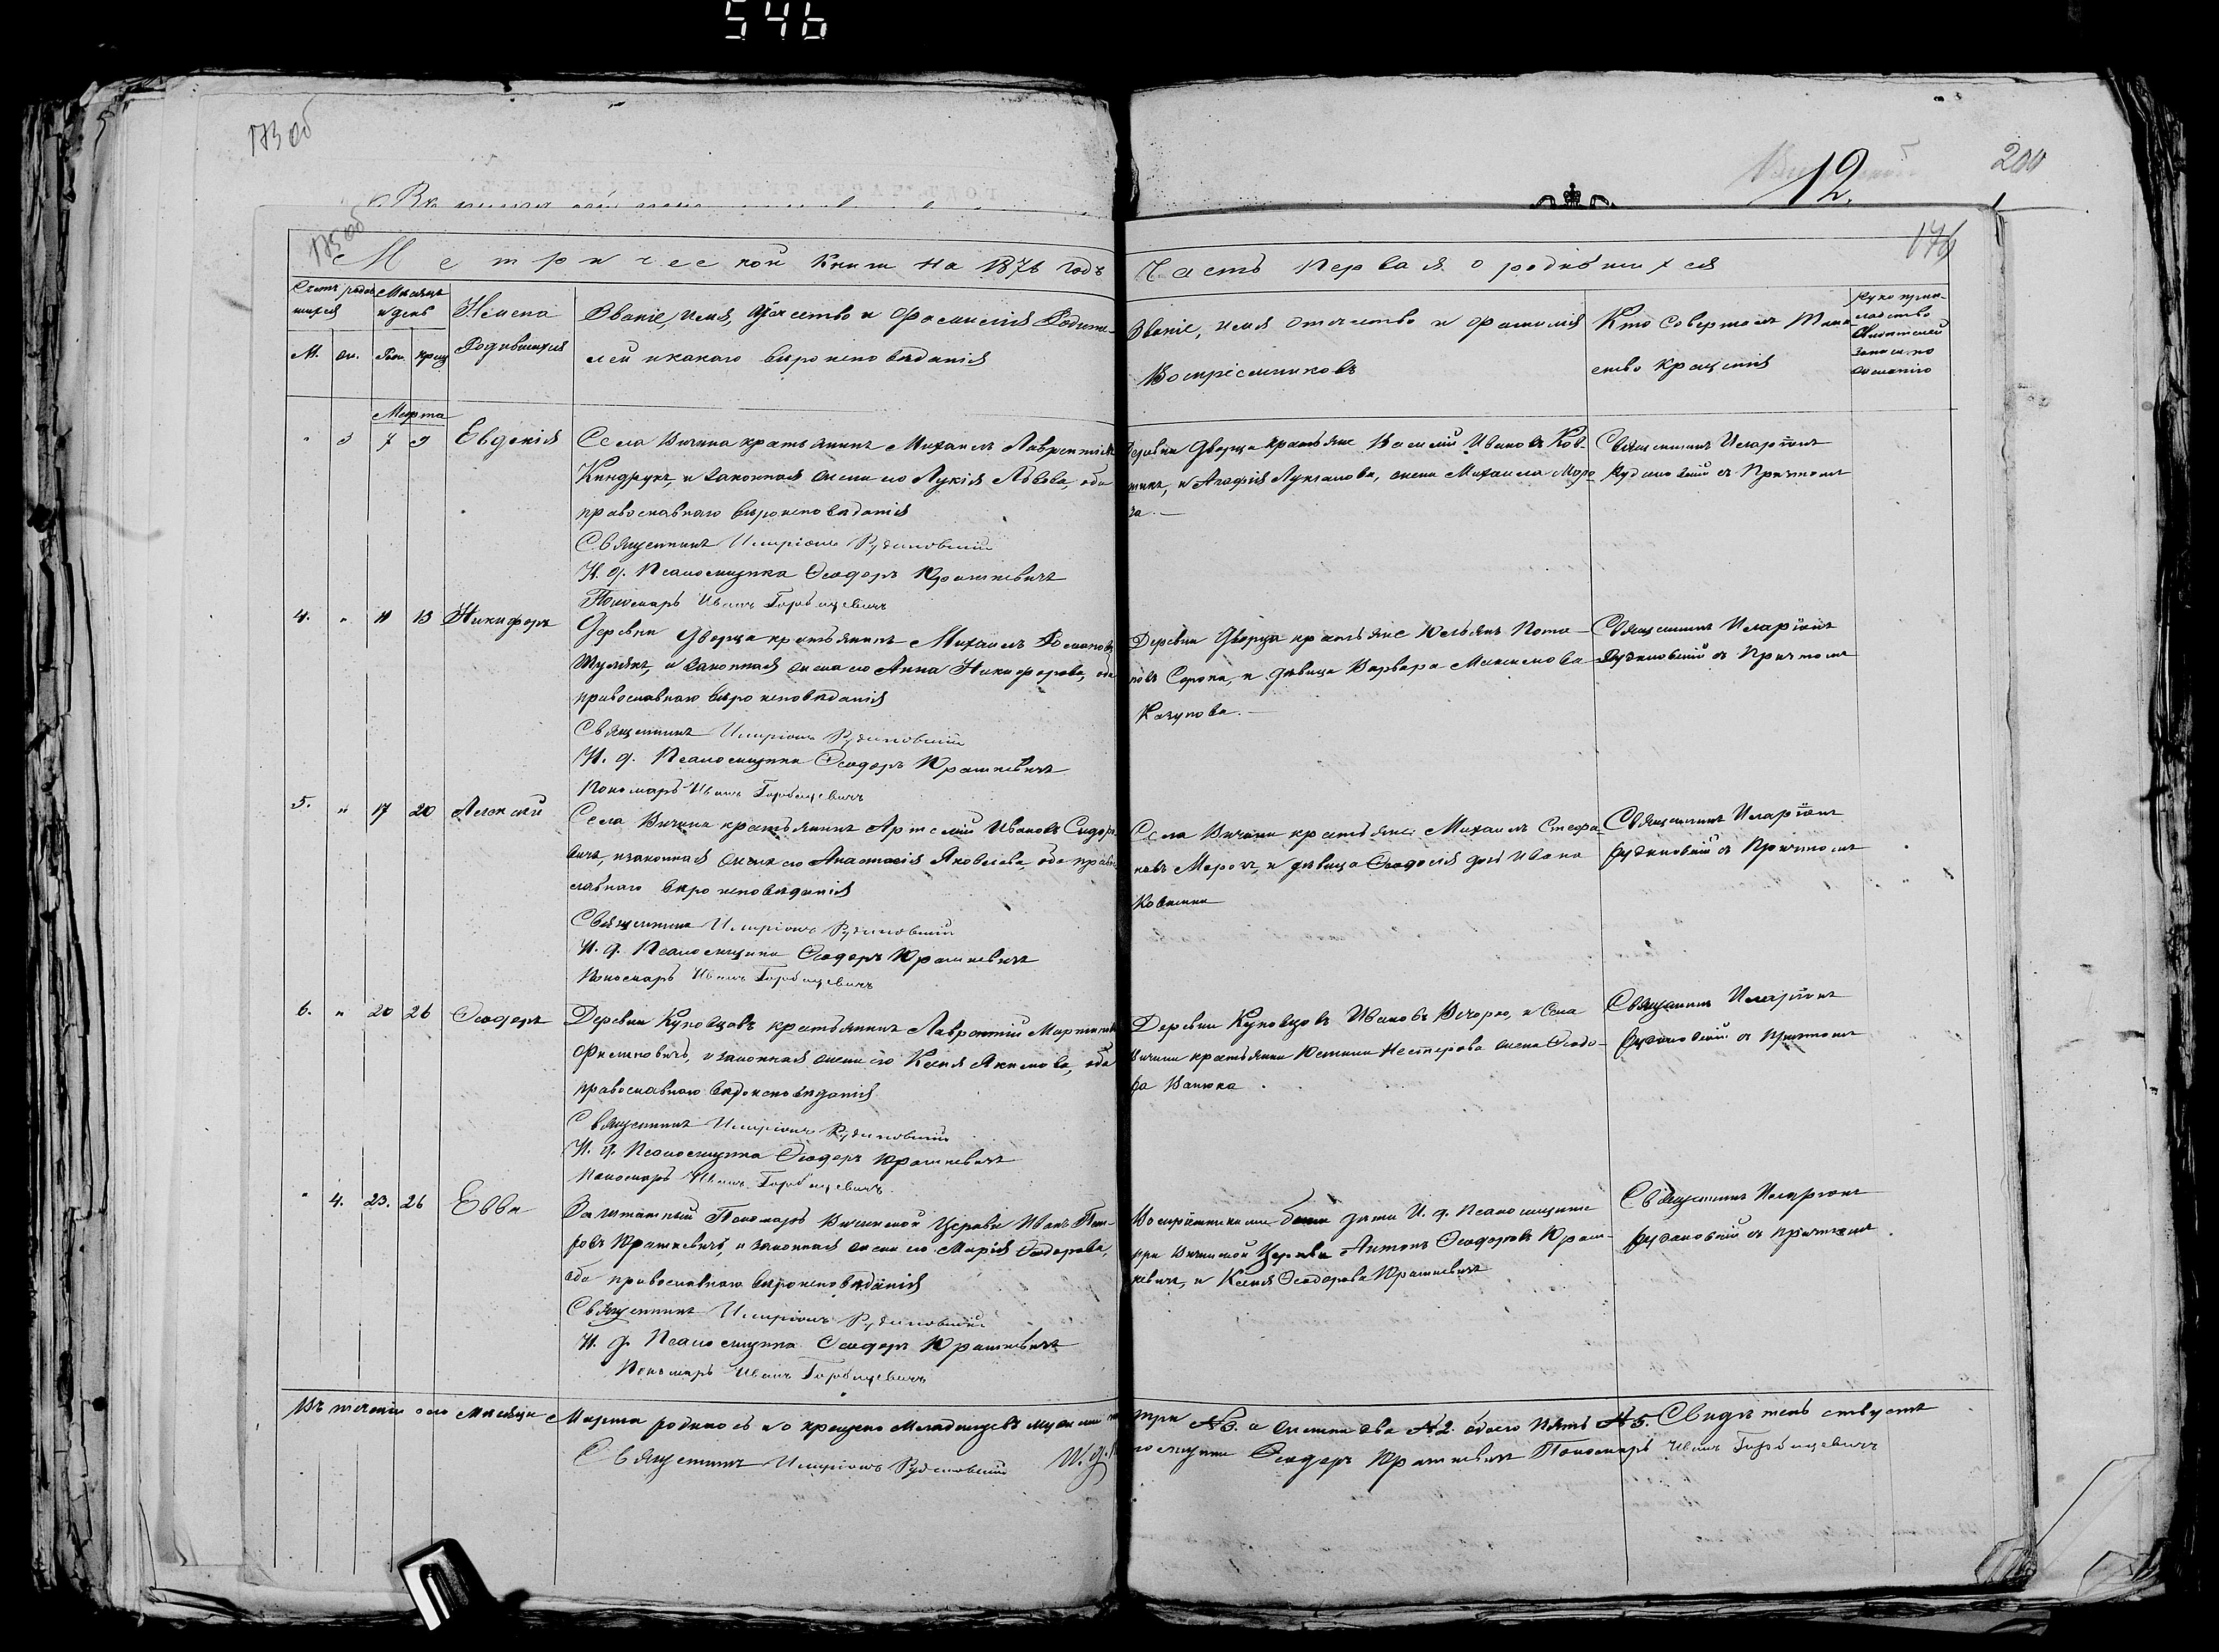 546
173 об
12.
200
175 об
176
Метрической книги на 1876 годъ
Часть первая о родившихся
Счетъ родив
шихся
Мѣсяцъ
и день
Имена
Родившихся
Званіе, имя, отчество и фамилія Родите-
лей и какого вѣроисповѣданія
Званіе, имя отчество и фамилія
Воспріемниковъ
Кто совершалъ Таин-
ство крещенія
Рукоприк-
ладство
свидѣтелей
записи по
желанію
М. Ж. Рож. крещ
Марта
" 3 7 9 Евдокія
Села Вичина крестьянинъ Михаилъ Лаврентіевъ
Киндрукъ, и законная жена его Лукія Львова, оба
православнаго вѣроисповѣданія
Священникъ Иларіонъ Рудановскій
И. д. Псаломщика Ѳеодоръ Юрашкевичъ
Пономарь Иванъ Горбацевичъ
Деревни Дворца крестьяне Василій Ивановъ Ков-
, и Агафія Лукьянова, жена Михаила Моро
за. —
Священникъ Иларіонъ
Рудановскій съ Причтомъ
4. " 11 13 Никифоръ
Деревни Дворца крестьянинъ Михаилъ Романовъ
Шулякъ, и законная жена его Анна Никифорова, оба
православнаго вѣроисповѣданія
Священникъ Иларіонъ Рудановскій
И. д. Псаломщика Ѳеодоръ Юрашкевичъ
Пономарь Иванъ Горбацевичъ
Деревни Дворца крестьяне Юльянъ Пота-
повъ Сорока, и дѣвица Варвара Максимова
Качунова. —
Священникъ Иларіонъ
Рудановскій съ Причтомъ
5. " 17 20 Алексѣй
Села Вичина крестьянинъ Артемій Ивановъ Сидоро
вичъ, и законная жена его Анастасія Яковлева, оба право
славнаго вѣроисповѣданія
Священникъ Иларіонъ Рудановскій
И. д. Псаломщика Ѳеодоръ Юрашкевичъ
Пономарь Иванъ Горбацевичъ
Села Вичина крестьяне Михаилъ Стефа-
новъ Морозъ, и дѣвица Ѳеодосія дочь Ивана
Священникъ Иларіонъ
Рудановскій съ Причтомъ
6. " 20 26 Ѳеодоръ
Деревни Куповцовъ крестьянинъ Лаврентій Мартиновъ
Филиповичъ, и законная жена его Ксенія Якимова, оба
православнаго вѣроисповѣданія
Священникъ Иларіонъ Рудановскій
И. д. Псаломщика Ѳеодоръ Юрашкевичъ
Пономарь Иванъ Горбацевичъ.
Деревни Куповцовъ Ивановъ Вечорко, и Села
Вичина крестьянка Юстина Нестерова жена Ѳеодо-
ра Ванюка.
Священникъ Иларіонъ
Рудановскій съ Причтомъ
" 4. 23. 26 Евва
Заштатный Пономарь Вичинской Церкви Иванъ Пет-
ровъ Юрашкевичъ, и законная жена его Марія Ѳеодорова,
оба православнаго вѣроисповѣданія
Священникъ Иларіонъ Рудановскій
И. д. Псаломщика Ѳеодоръ Юрашкевичъ
Пономарь Иванъ Горбацевичъ
Воспріемниками были дѣти И. д. Псаломщика
при Вичинской Церкви Антонъ Ѳеодоровъ Юраш-
кевичъ, и Ксенія Ѳеодорова Юрашкевичъ
Священникъ Иларіонъ
Рудановскій съ Причтомъ.
Въ теченіи сего мѣсяца Марта родилось и окрещено младенцевъ мужеска три №3. а женска два №2. обоего пять №5. Свидѣтельствуетъ
Священникъ Иларіонъ Рудановскій И. д. Ѳеодоръ Юрашкевичъ Пономарь Иванъ Горбацевичъ